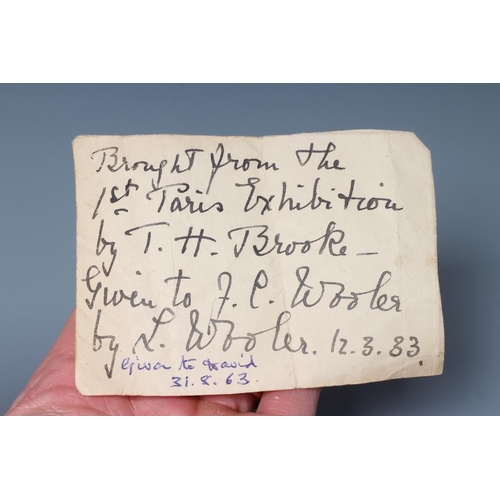 Brought from the
1st Paris Exhibition
by T. H. Brooke —
Given to F. C. Wooler
by L. Wooler. 12.3.33.
Given to David
31.8.63.